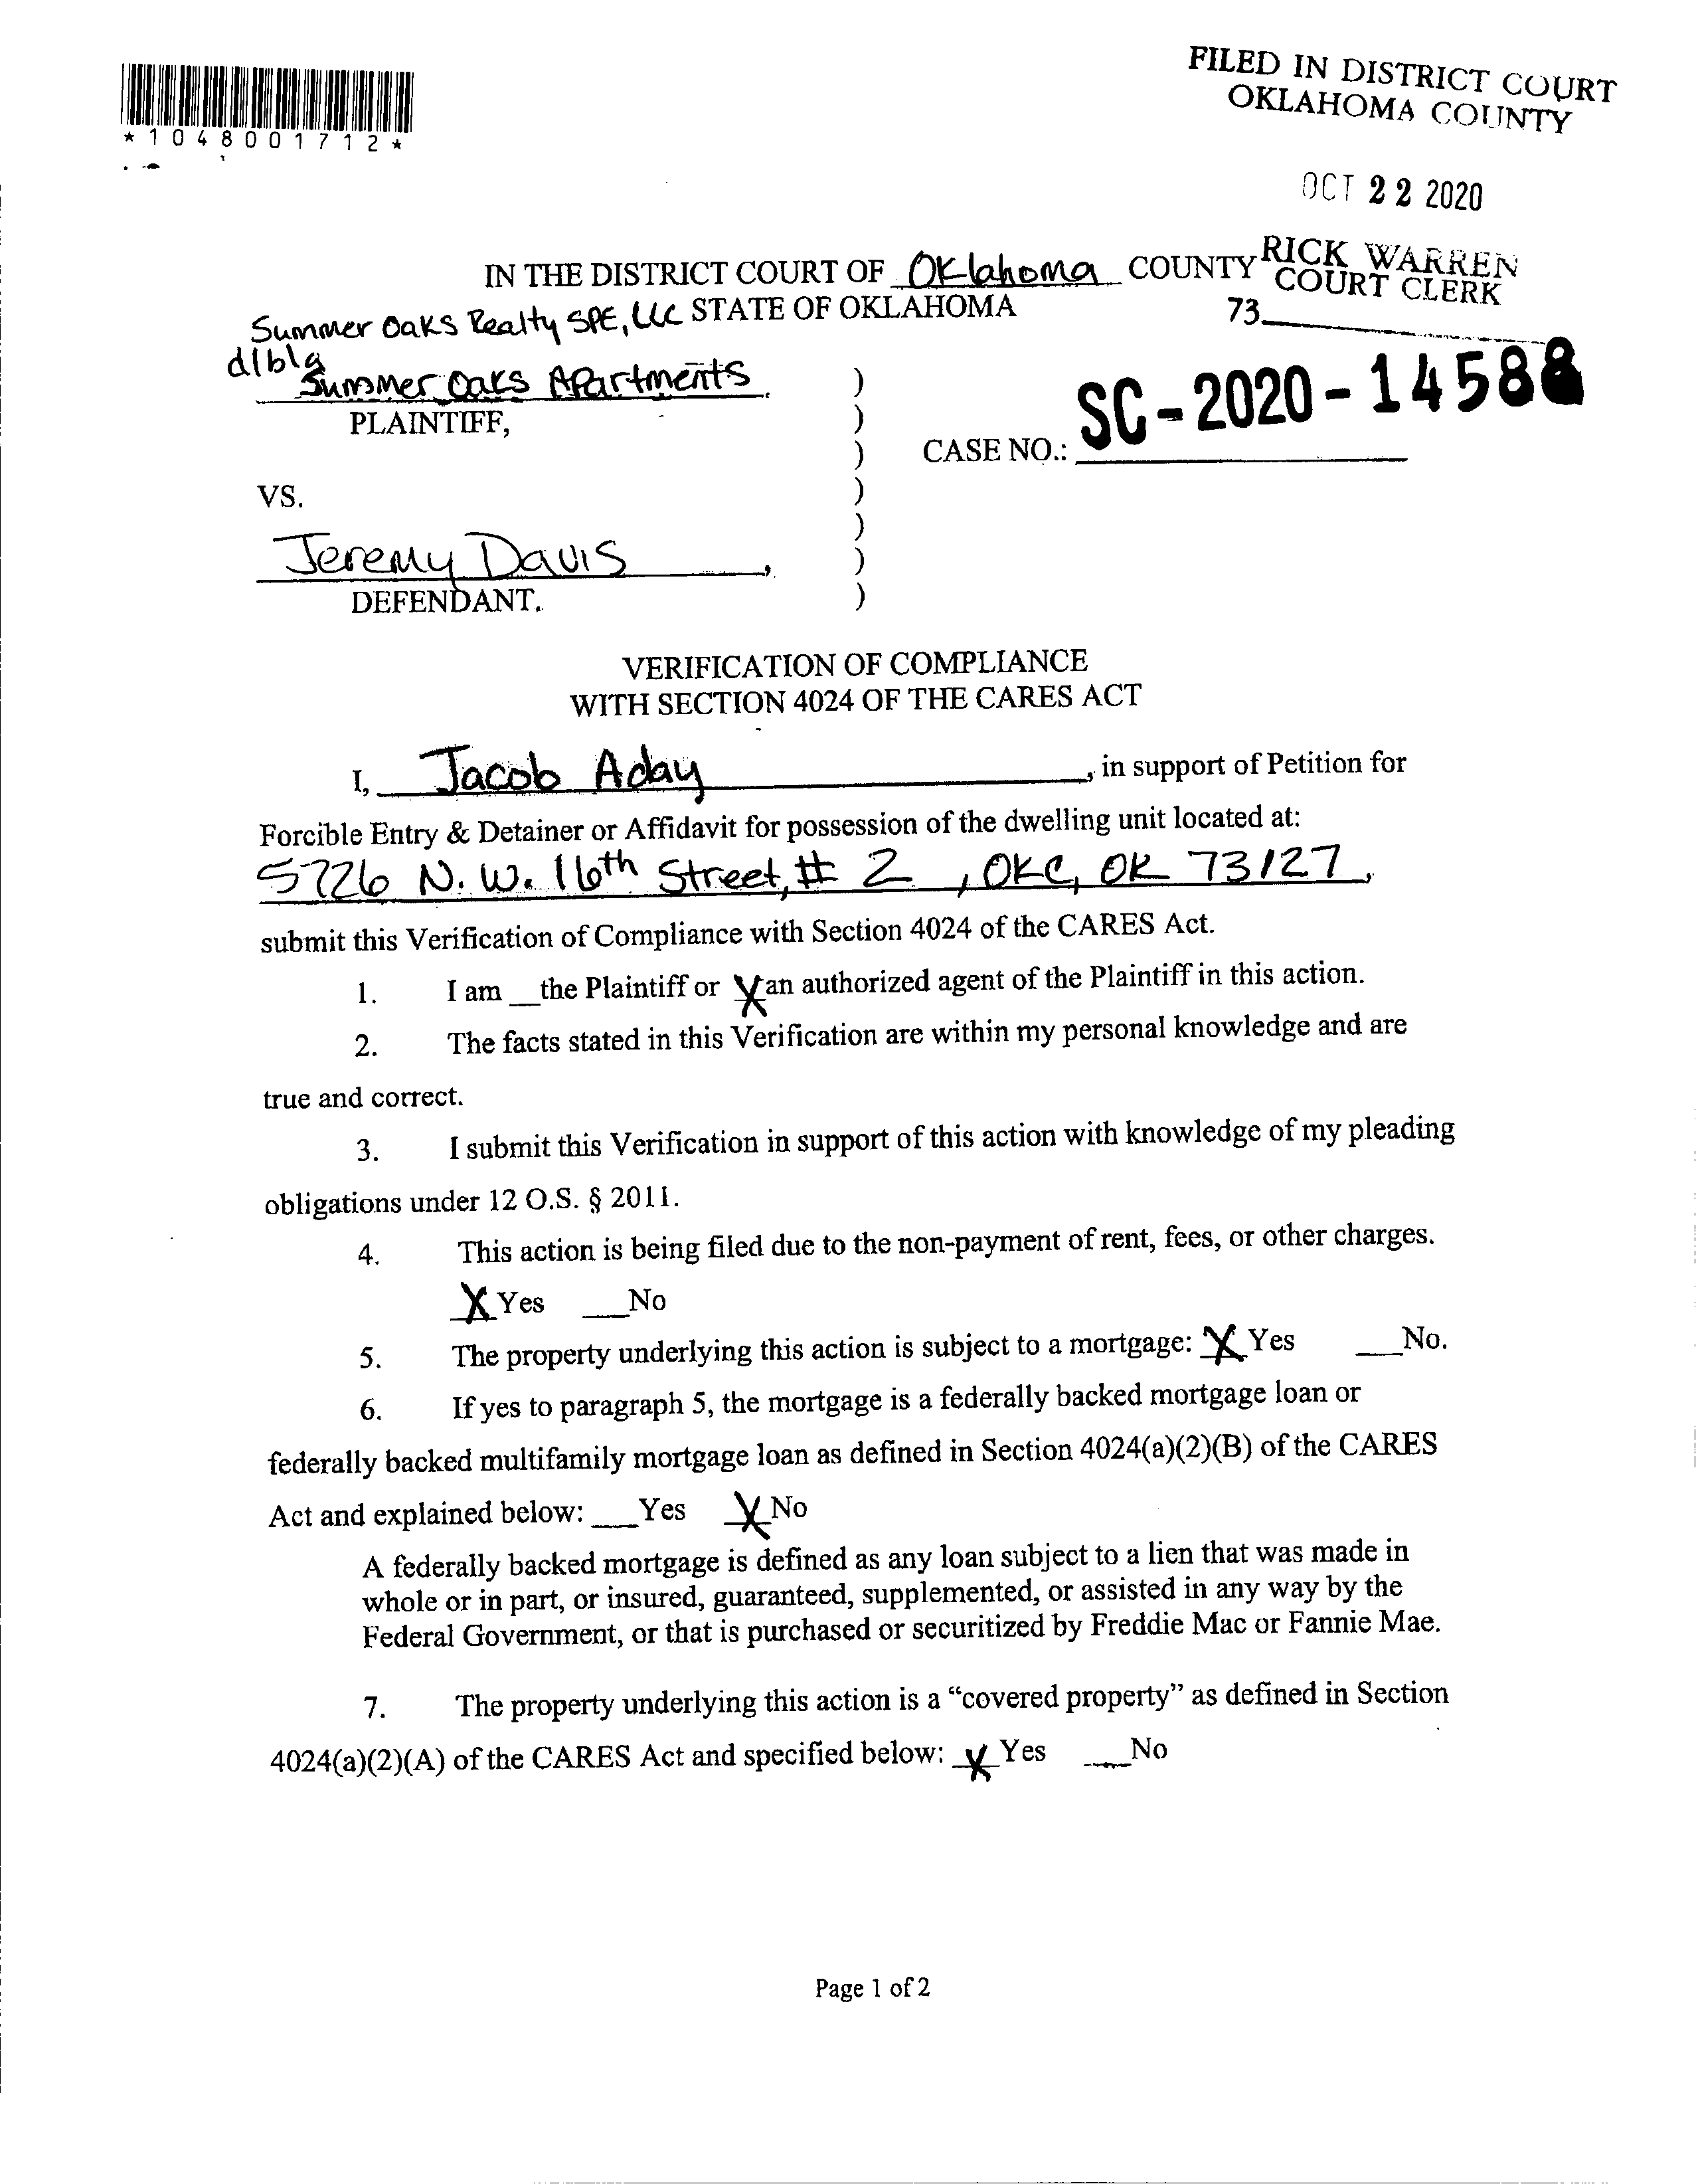 *1048001712*
FILED IN DISTRICT COURT
OKLAHOMA COUNTY
OCT 22 2020
RICK WARREN
COURT CLERK
73
IN THE DISTRICT COURT OF Oklahoma COUNTY
STATE OF OKLAHOMA
Summer Oaks Realty SPE, LLC
d/b/a
Summer Oaks Apartments
PLAINTIFF,
SC-2020-14588
CASE NO.:
VS.
Jeremy Davis,
DEFENDANT.
)
)
)
)
)
)
)
VERIFICATION OF COMPLIANCE
WITH SECTION 4024 OF THE CARES ACT
I, Jacob Aday, in support of Petition for
Forcible Entry & Detainer or Affidavit for possession of the dwelling unit located at:
5726 N.W. 16th Street, # 2, OKC, OK 73127,
submit this Verification of Compliance with Section 4024 of the CARES Act.
1. I am __the Plaintiff or X an authorized agent of the Plaintiff in this action.
2. The facts stated in this Verification are within my personal knowledge and are
true and correct.
3. I submit this Verification in support of this action with knowledge of my pleading
obligations under 12 O.S. § 2011.
4. This action is being filed due to the non-payment of rent, fees, or other charges.
X Yes ___No
5. The property underlying this action is subject to a mortgage: X Yes ___No.
6. If yes to paragraph 5, the mortgage is a federally backed mortgage loan or
federally backed multifamily mortgage loan as defined in Section 4024(a)(2)(B) of the CARES
Act and explained below: ___Yes X No
A federally backed mortgage is defined as any loan subject to a lien that was made in
whole or in part, or insured, guaranteed, supplemented, or assisted in any way by the
Federal Government, or that is purchased or securitized by Freddie Mac or Fannie Mae.
7. The property underlying this action is a “covered property” as defined in Section
4024(a)(2)(A) of the CARES Act and specified below: X Yes ___No
Page 1 of 2